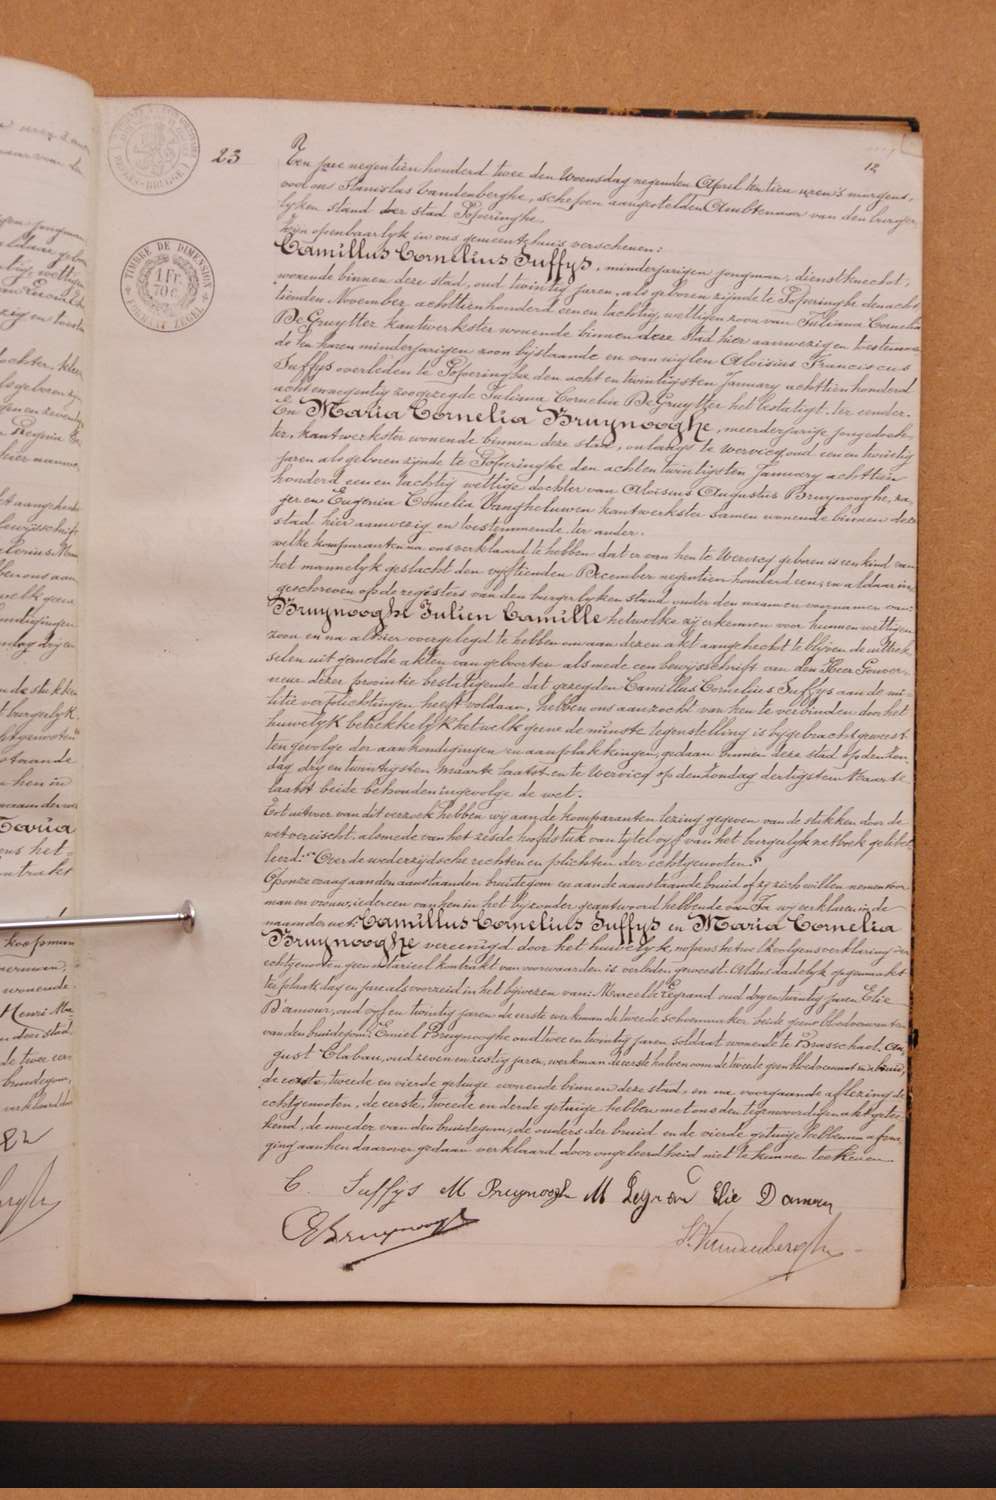 23
12
TIMBRE DE DIMENSION
1 FR.
70 c
FORMAAT ZEGEL
Een jare negentien honderd twee den Woensdag negenden April ten tien uren 's morgens,
voor ons Stanislas Vandenberghe, schepen aangestelden Ambtenaar van den burger-
lyken stand der stad Poperinghe.
zyn openbaarlyk in ons gemeentehuis verschenen:
Camillus Cornelius Juffys, minderjarigen jongman, dienstknecht,
wonende binnen deze stad, oud twintig jaren, als geboren zijnde te Poperinghe den acht-
tienden November achttien honderd een en tachtig, wettigen zoon van Juliana Cornelia
De Gruytter kantwerkster wonende binnen deze stad hier aanwezig en toestemmen-
de ten haren minderjarigen zoon bijstaande en van wylen Aloisius Franciscus
Juffys overleden te Poperinghe den acht en twintigsten January achttien honderd
acht en negentig zoo gezegde Juliana Cornelia De Gruytter het bestatigt. ter eender.
En Maria Cornelia Bruynooghe, meerderjarige jongedoch-
ter, kantwerkster wonende binnen deze stad, onlangs te Wervicq oud een en twintig
jaren als geboren zijnde te Poperinghe den acht en twintigsten January achttien
honderd een en tachtig wettige dochter van Aloisius Augustus Bruynooghe,
en Eugenia Cornelia Vangheluwen kantwerkster samen wonende binnen deze
stad hier aanwezig en toestemmende ter ander.
welke komparanten na ons verklaard te hebben dat er van hen te Wervicq geboren is een kind van
het mannelyk geslacht den vyftienden December negentien honderd een, en aldaar in-
geschreven op de registers van den burgerlyken stand onder den naam en voornamen van:
Bruynooghe Julien Camille hetwelke zij erkennen voor hunnen wettigen
zoon en na alhier overgelegd te hebben om aan dezen akt aangehecht te blijven de uittrek-
selen uit gemelde akten van geboorten alsmede een bewijsschrift van den Heer Gouver-
neur dezer provintie bestatigende dat gezegden Camillus Cornelius Juffys aan de mi-
litie verplichtingen heeft voldaan, hebben ons aanzocht van hen te verbinden door het
huwelyk betrekkelyk het welk geene de minste tegenstelling is bygebracht geweest
ten gevolge der aankondigingen en aanplakkingen, gedaan binnen deze stad op den Zon-
dag dry en twintigsten Maarte laatst en te Wervicq op den Zondag dertigsten Maarte
laatst beide behouden ingevolge de wet.
Tot uitvoer van dit verzoek hebben wij aan de komparanten lezing gegeven van de stukken door de
wet vereischt, alsmede van het zesde hoofdstuk van tytel vyf van het burgerlyk wetboek getitel-
leerd: "Over de wederzijdsche rechten en plichten der echtgenooten."
Op onze vraag aan den aanstaanden bruidegom en aan de aanstaande bruid of zij zich willen nemen voor
man en vrouw, iedereen van hen in het byzonder geantwoord hebbende van Ja wij verklaren in de
naam der wet: Camillus Cornelius Juffys en Maria Cornelia
Bruynooghe vereenigd door het huwelyk, nopens hetwelk volgens verklaring der
echtgenooten geen notarieel kontrakt van voorwaarden is verleden geweest. Aldus dadelyk opgemaakt
ter plaats, dag en jare als voorzeid in het bijwezen van: Marcel Legrand oud dry en twintig jaren Elie
D'amour, oud vyf en twintig jaren de eerste werkman de tweede schoenmaker, beide geene bloedverwanten
van den bruidegom: Emiel Bruynooghe oud twee en twintig jaren, soldaat wonende te Brasschaet, Au-
gust Claban, oud zeven en zestig jaren, werkman de eerste halven oom de tweede geen bloedverwant der bruid,
de eerste, tweede en vierde getuige wonende binnen deze stad, en na voorgaande aflezing de
echtgenooten, de eerste, tweede en derde getuige hebben met ons den tegenwoordigen akt getee-
kend, de moeder van den bruidegom, de ouders der bruid en de vierde getuige hebben na afvra-
ging aan hen daarover gedaan verklaard door ongeleerdheid niet te kunnen teekenen.
C. Juffys M Bruynooghe M Legrand Elie Damour
E Bruynooghe
S. Vandenberghe